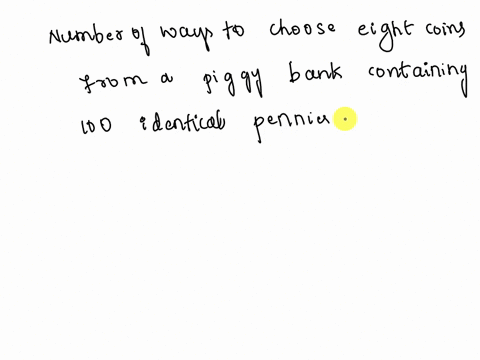 Number of ways to choose eight coins
from a piggy bank containing
100 identical pennies